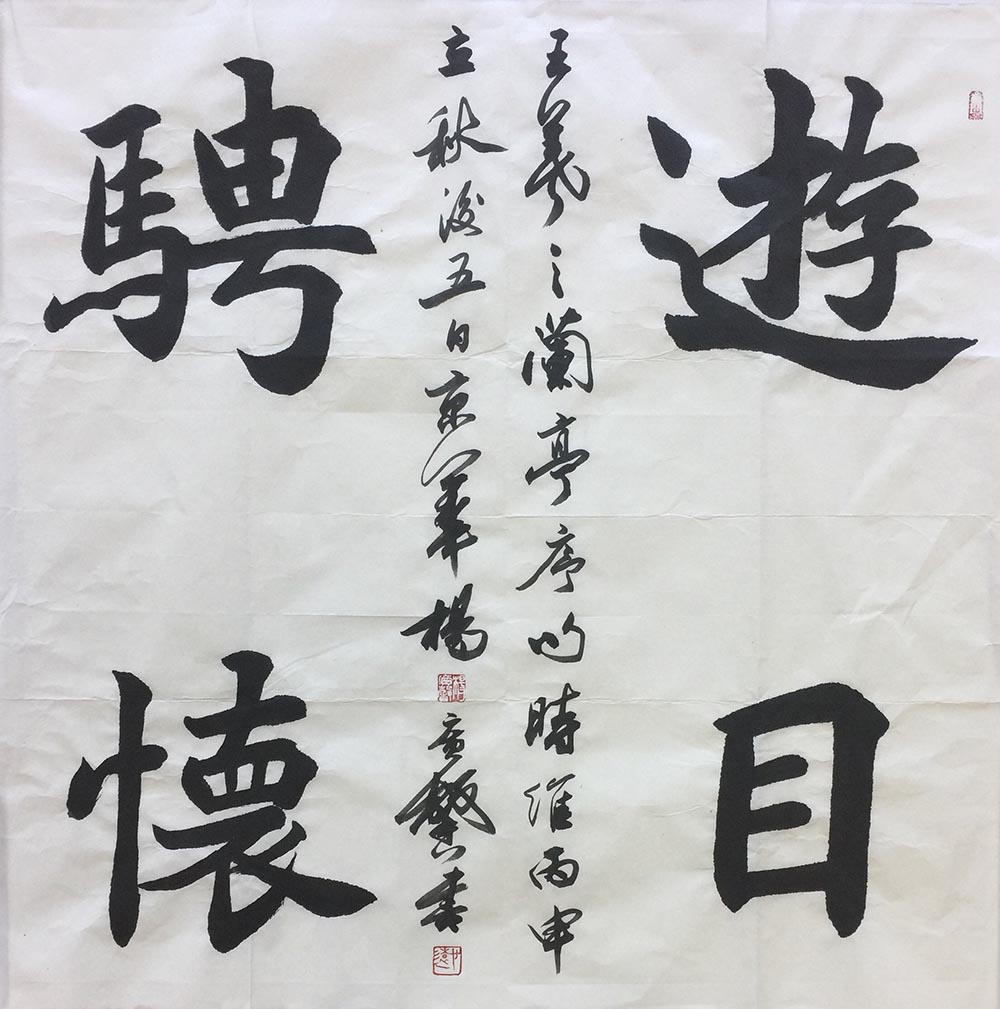 遊目
騁懷
王羲之蘭亭序句時維丙申
立秋後五日京華楊廣馨書